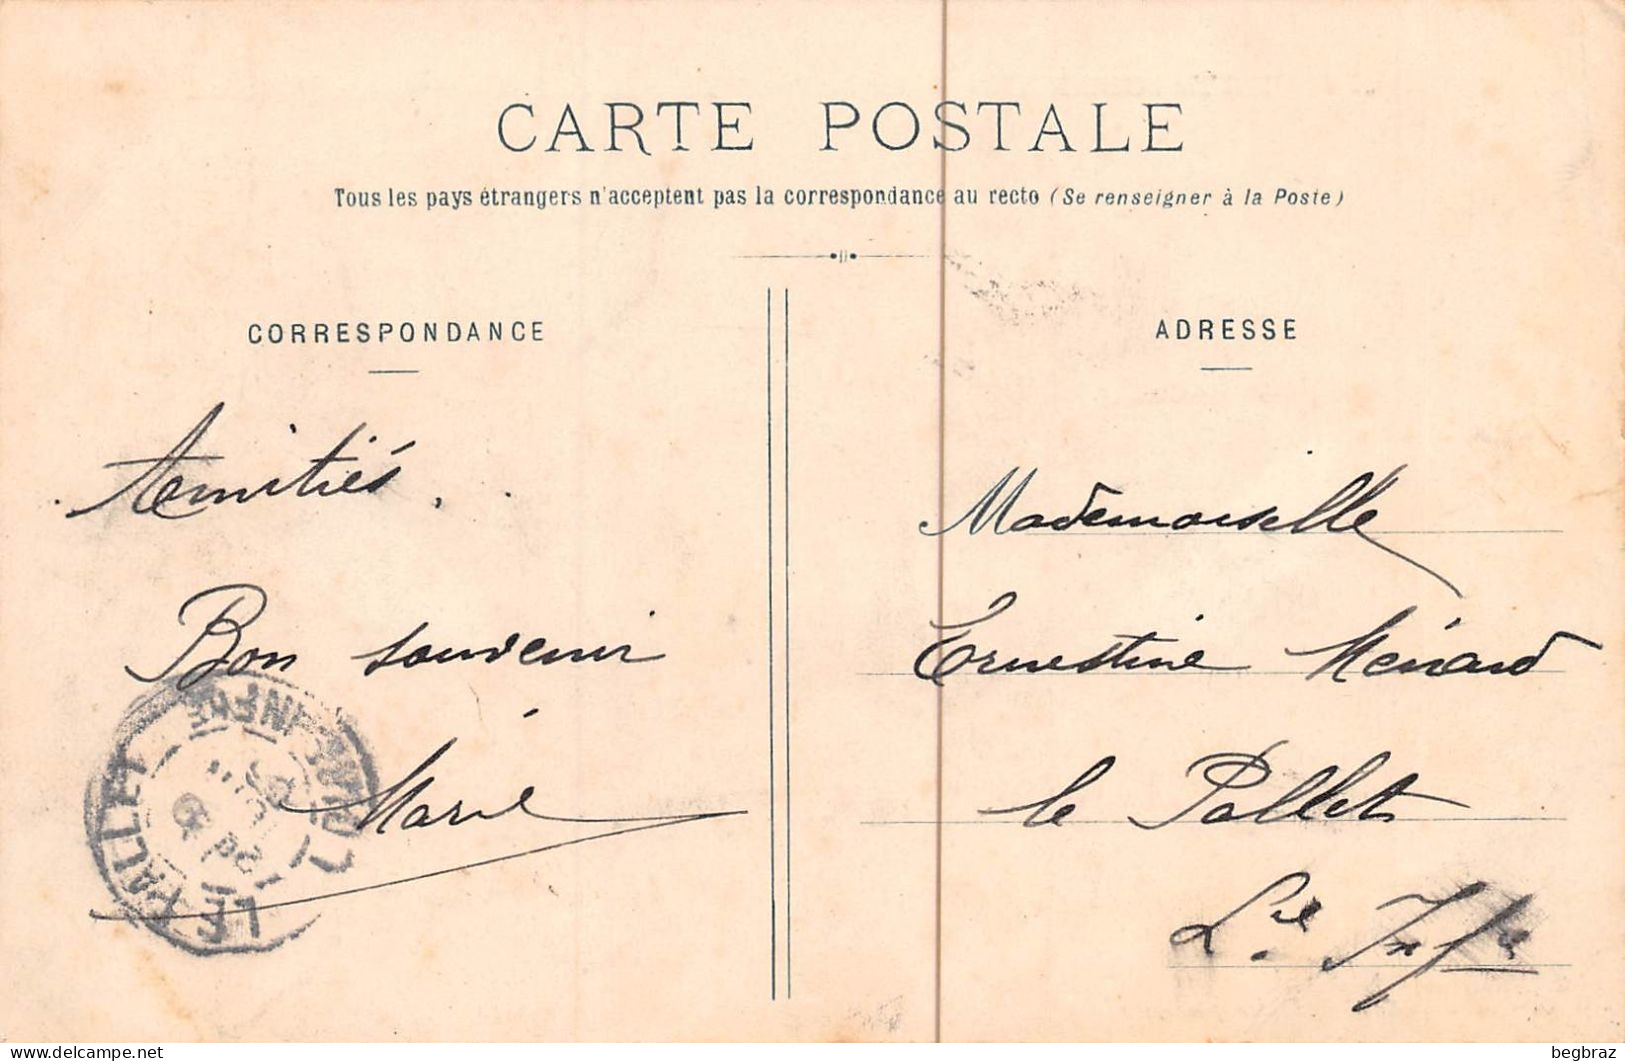 CARTE POSTALE
Tous les pays étrangers n'acceptent pas la correspondance au recto (Se renseigner à la Poste)
CORRESPONDANCE
Amitiés.
Bon souvenir
Marie
LE PALLET
ADRESSE
Mademoiselle
Ernestine Ménard
le Pallet
Lre Infre
begbraz